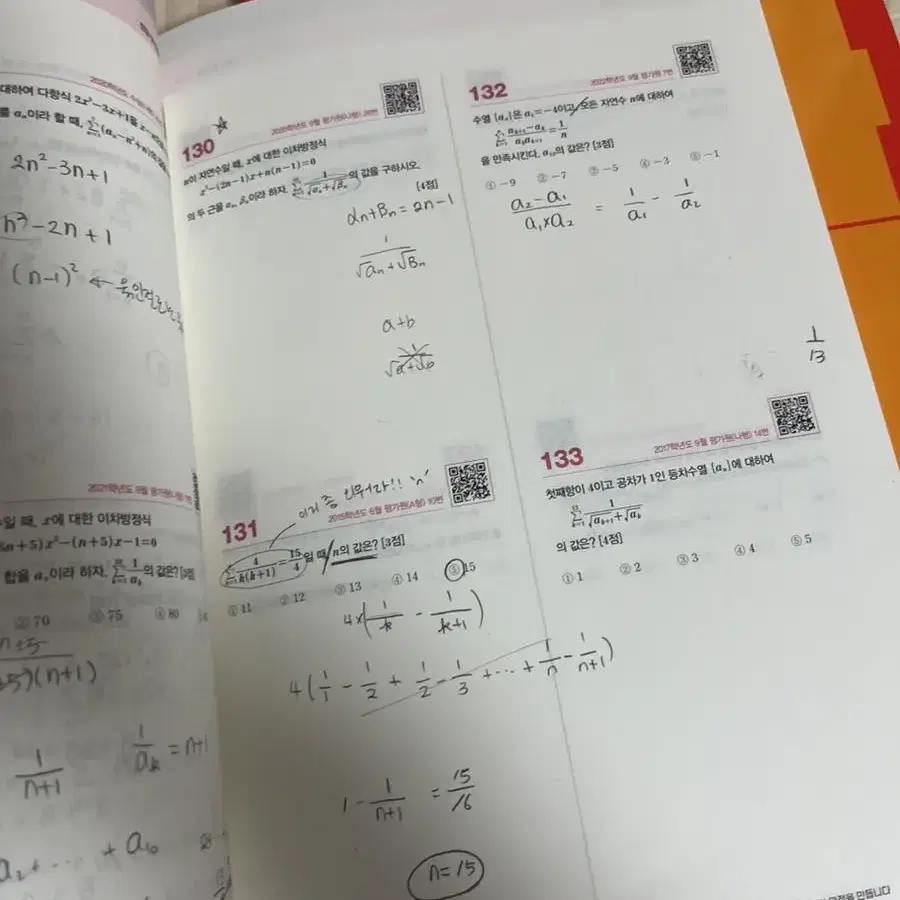 대하여 다항식 2x²-3x+1을
를 aₙ이라 할 때,
2n²-3n+1
n²-2n+1
(n-1)² ←
2021학년도 6월 평가원
일 때, x에 대한 이차방정식
x²-(n+5)x-1=0
합을 aₙ이라 하자.
의 값은?
② 70 ③ 75 ④ 80
(n+1)
1/(n+1) 1/aₖ = n+1
a₂+ ⋯ + a₁₀
130
2020학년도 9월 평가원(나형) 26번
n이 자연수일 때, x에 대한 이차방정식
x²-(2n-1)x+n(n-1)=0
의 두 근을 αₙ, βₙ이라 하자. 1/(√αₙ+√βₙ)의 값을 구하시오.
[4점]
αn+βn = 2n-1
1/(√αn+√βn)
a+b
131
2015학년도 6월 평가원(A형) 10번
4/(k(k+1))=15/4일 때, n의 값은? [3점]
① 11 ② 12 ③ 13 ④ 14 ⑤ 15
4×(1/k - 1/(k+1))
4(1/1 - 1/2 + 1/2 - 1/3 + ⋯ + 1/n - 1/(n+1))
1 - 1/(n+1) = 15/16
n=15
132
2022학년도 9월 평가원 7번
수열 {aₙ}은 a₁=-4이고, 모든 자연수 n에 대하여
∑ (aₖ₊₁-aₖ)/(aₖaₖ₊₁)=1/n
을 만족시킨다. a₁₃의 값은? [3점]
① -9 ② -7 ③ -5 ④ -3 ⑤ -1
(a₂-a₁)/(a₁×a₂) = 1/a₁ - 1/a₂
1/13
133
2017학년도 9월 평가원(나형) 14번
첫째항이 4이고 공차가 1인 등차수열 {aₙ}에 대하여
∑ 1/(√aₖ₊₁+√aₖ)
의 값은? [4점]
① 1 ② 2 ③ 3 ④ 4 ⑤ 5
만듭니다